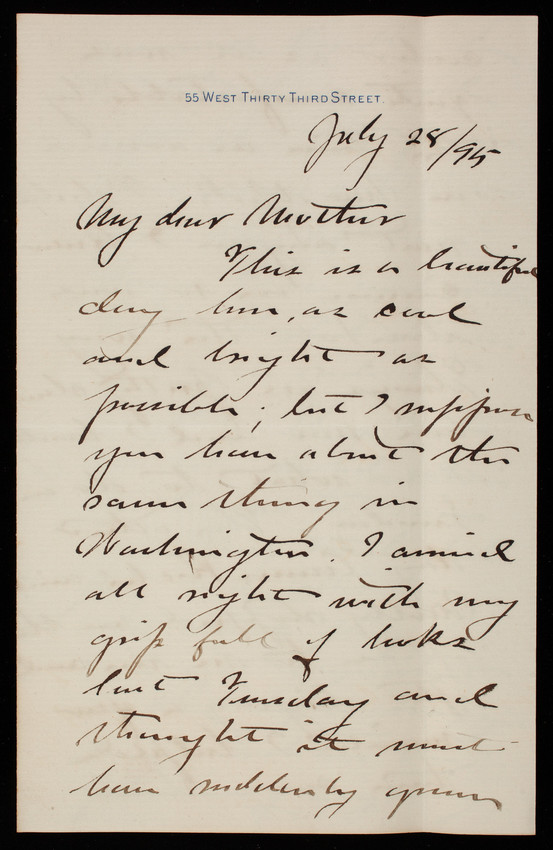 55 WEST THIRTY THIRD STREET.
July 28/95
My dear Mother
This is a beautiful
day here, as cool
and bright as
possible; but I suppose
you have about the
same thing in
Washington. I arrived
all right with my
grip full of books
last Tuesday and
thought it must
have suddenly grown